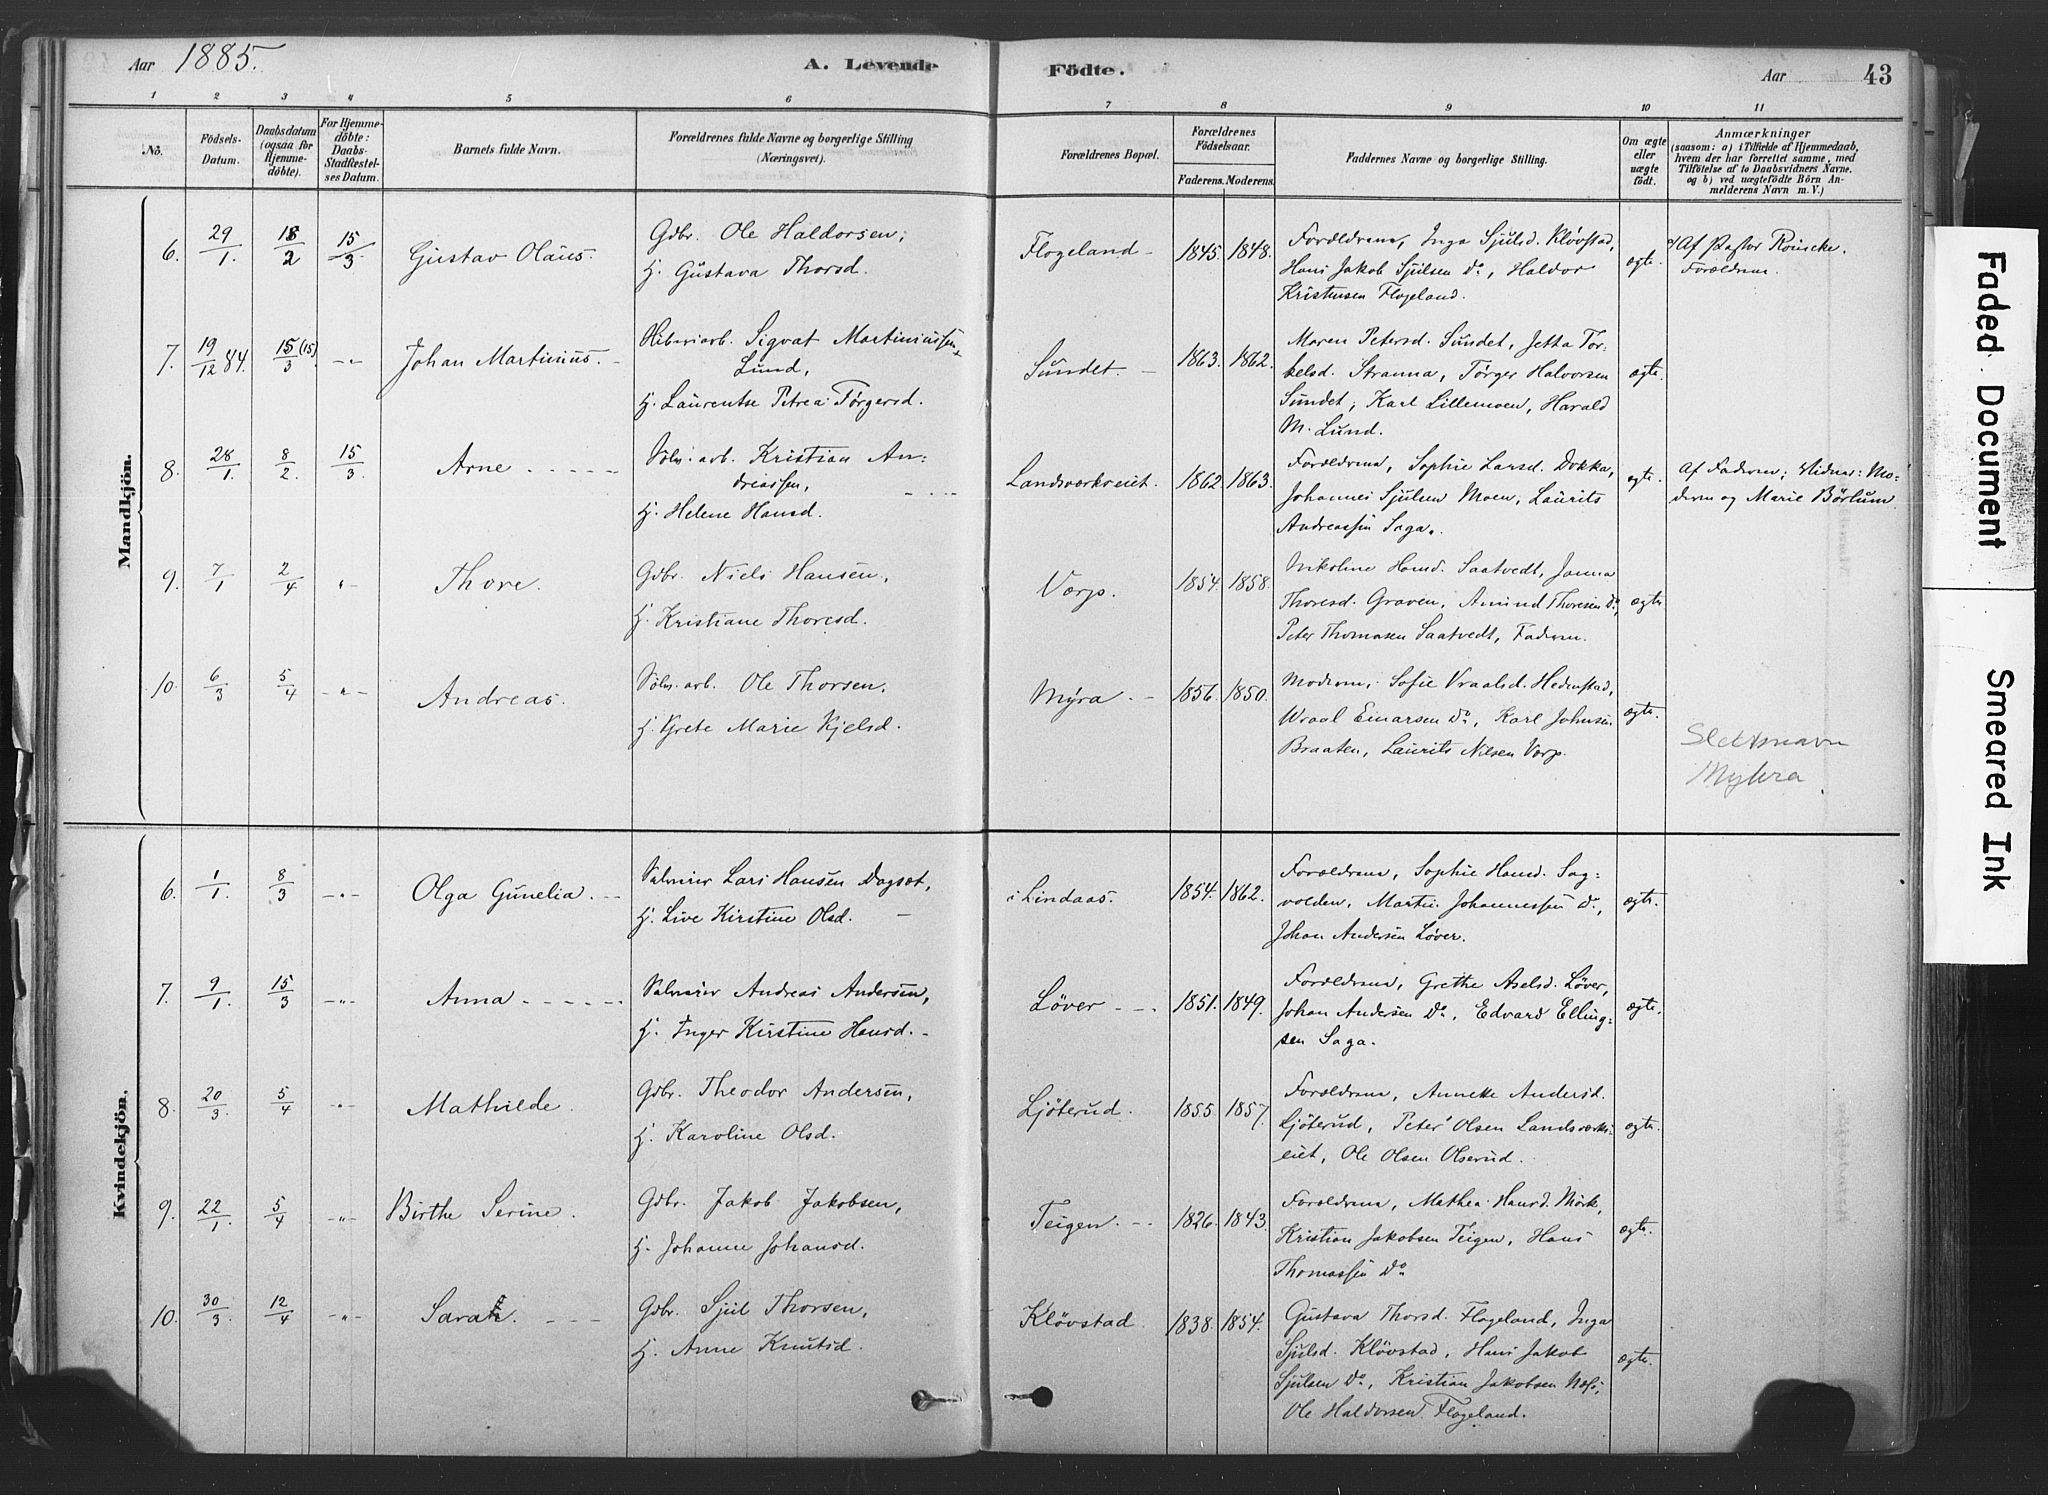 Aar 1885. A. Levende Födte. Aar 43
1 2 3 4 5 6 7 8 9 10 11
No.
Födsels-
Datum.
Daabsdatum
(ogsaa for
Hjemme-
döbte).
For Hjemme-
döbte:
Daabs-
Stadfæstel-
ses Datum.
Barnets fulde Navn.
Forældrenes fulde Navne og borgerlige Stilling
(Næringsvei).
Forældrenes Bopæl.
Forældrenes
Födselsaar.
Faderens. Moderens.
Faddernes Navne og borgerlige Stilling.
Om ægte
eller
uægte
födt.
Anmærkninger
(saasom: a) i Tilfælde af Hjemmedaab,
hvem der har forrettet samme, med
Tilföielse af to Daabsvidners Navne,
og b) ved uægtefödte Börn An-
melderens Navn m. V.)
Mandkjön.
6. 29/1. 18/2 15/3 Gustav Olaus.
Gdbr. Ole Haldorsen,
H. Gustava Thorsd.
Flogeland - 1845. 1848.
Forældrene, Inga Sjulsd. Kløvstad,
Hans Jakob Sjulsen Do, Haldor
Kristensen Flogeland.
ægte.
Af Pastor
Forældrene.
7. 19/12 84. 15/3 (15) -"- Johan Martinius. -
Sigvat Martiniussen
Lund,
H. Laurentse Petrea Tørgersd.
Sundet. - 1863. 1862.
Maren Petersd. Sundet, Jetta Tor-
kelsd. Stranna, Tørger Halvorsen
Sundet, Karl Lillemoen, Harald
M. Lund.
ægte.
8. 28/1. 8/2. 15/3. Arne - - - - -
Sølv. arb. Kristian An-
dreassen,
H. Helene Hansd. - - - -
Landsværkseiet. 1862 1863.
Forældrene, Sophie Larsd. Dokka,
Johannes Sjulsen Moen, Laurits
Andreassen Saga.
ægte.
Af Faderen; Vidner: Mo-
deren og Marie Børlum.
9. 7/1 2/4 " Thore.
Gdbr. Niels Hansen,
H. Kristiane Thoresd.
Værp. 1854. 1858.
Nikoline Hansd. Saatvedt, Janna
Thoresd. Graven, Amund Thoresen Do,
Peter Thomasen Saatvedt, Faderen.
ægte
10. 6/3 5/4 -"- Andreas.
Sølv. arb. Ole Thorsen,
H. Grete Marie Kjelsd.
Myra - 1856. 1850.
Moderen, Sofie Vraalsd. Hedenstad,
Wraal Einarsen Do, Karl Johnsen
Braaten, Laurits Nilsen Værp.
ægte.
Slektsnavn
Myhra
Kvindekjön.
6. 1/1. 8/3 -"- Olga Gunelia. --
Lars Hansen Dagsæt,
H. Live Kirstine Olsd. -
i Lindaas. 1854. 1862.
Forældrene, Sophie Hansd. Sag-
volden, Martin Johannessen Do,
Johan Andersen Løver.
ægte.
7. 9/1. 15/3 -"- Anna - - - - -
Andreas Andersen,
H. Inger Kirstine Hansd. -
Løver - - - 1851. 1849.
Forældrene, Grethe Axelsd. Løver,
Johan Andersen Do, Edvard Elling-
sen Saga.
ægte.
8. 20/3. 5/4 -"- Mathilde.
Gdbr. Theodor Andersen,
H. Karoline Olsd.
Ljøterud. 1855. 1857.
Forældrene, Annette Andersd.
Ljøterud, Peter Olsen Landsværks-
eiet, Ole Olsen Olserud.
ægte.
9. 22/1. 5/4 -"- Birthe Serine.
Gdbr. Jakob Jakobsen,
H. Johanne Johansd.
Teigen. -- 1826. 1843.
Forældrene, Mathea Hansd. Mørk,
Kristian Jakobsen Teigen, Hans
Thomassen Do
ægte.
10. 30/3. 12/4 -"- Sarah. - - -
Gdbr. Sjul Thorsen,
H. Anne Knutsd.
Kløvstad. 1838. 1854.
Gustava Thorsd. Flogeland, Inga
Sjulsd. Kløvstad, Hans Jakob
Sjulsen Do, Kristian Jakobsen Næs,
Ole Haldorsen Flogeland.
ægte.
Faded Document
Smeared Ink